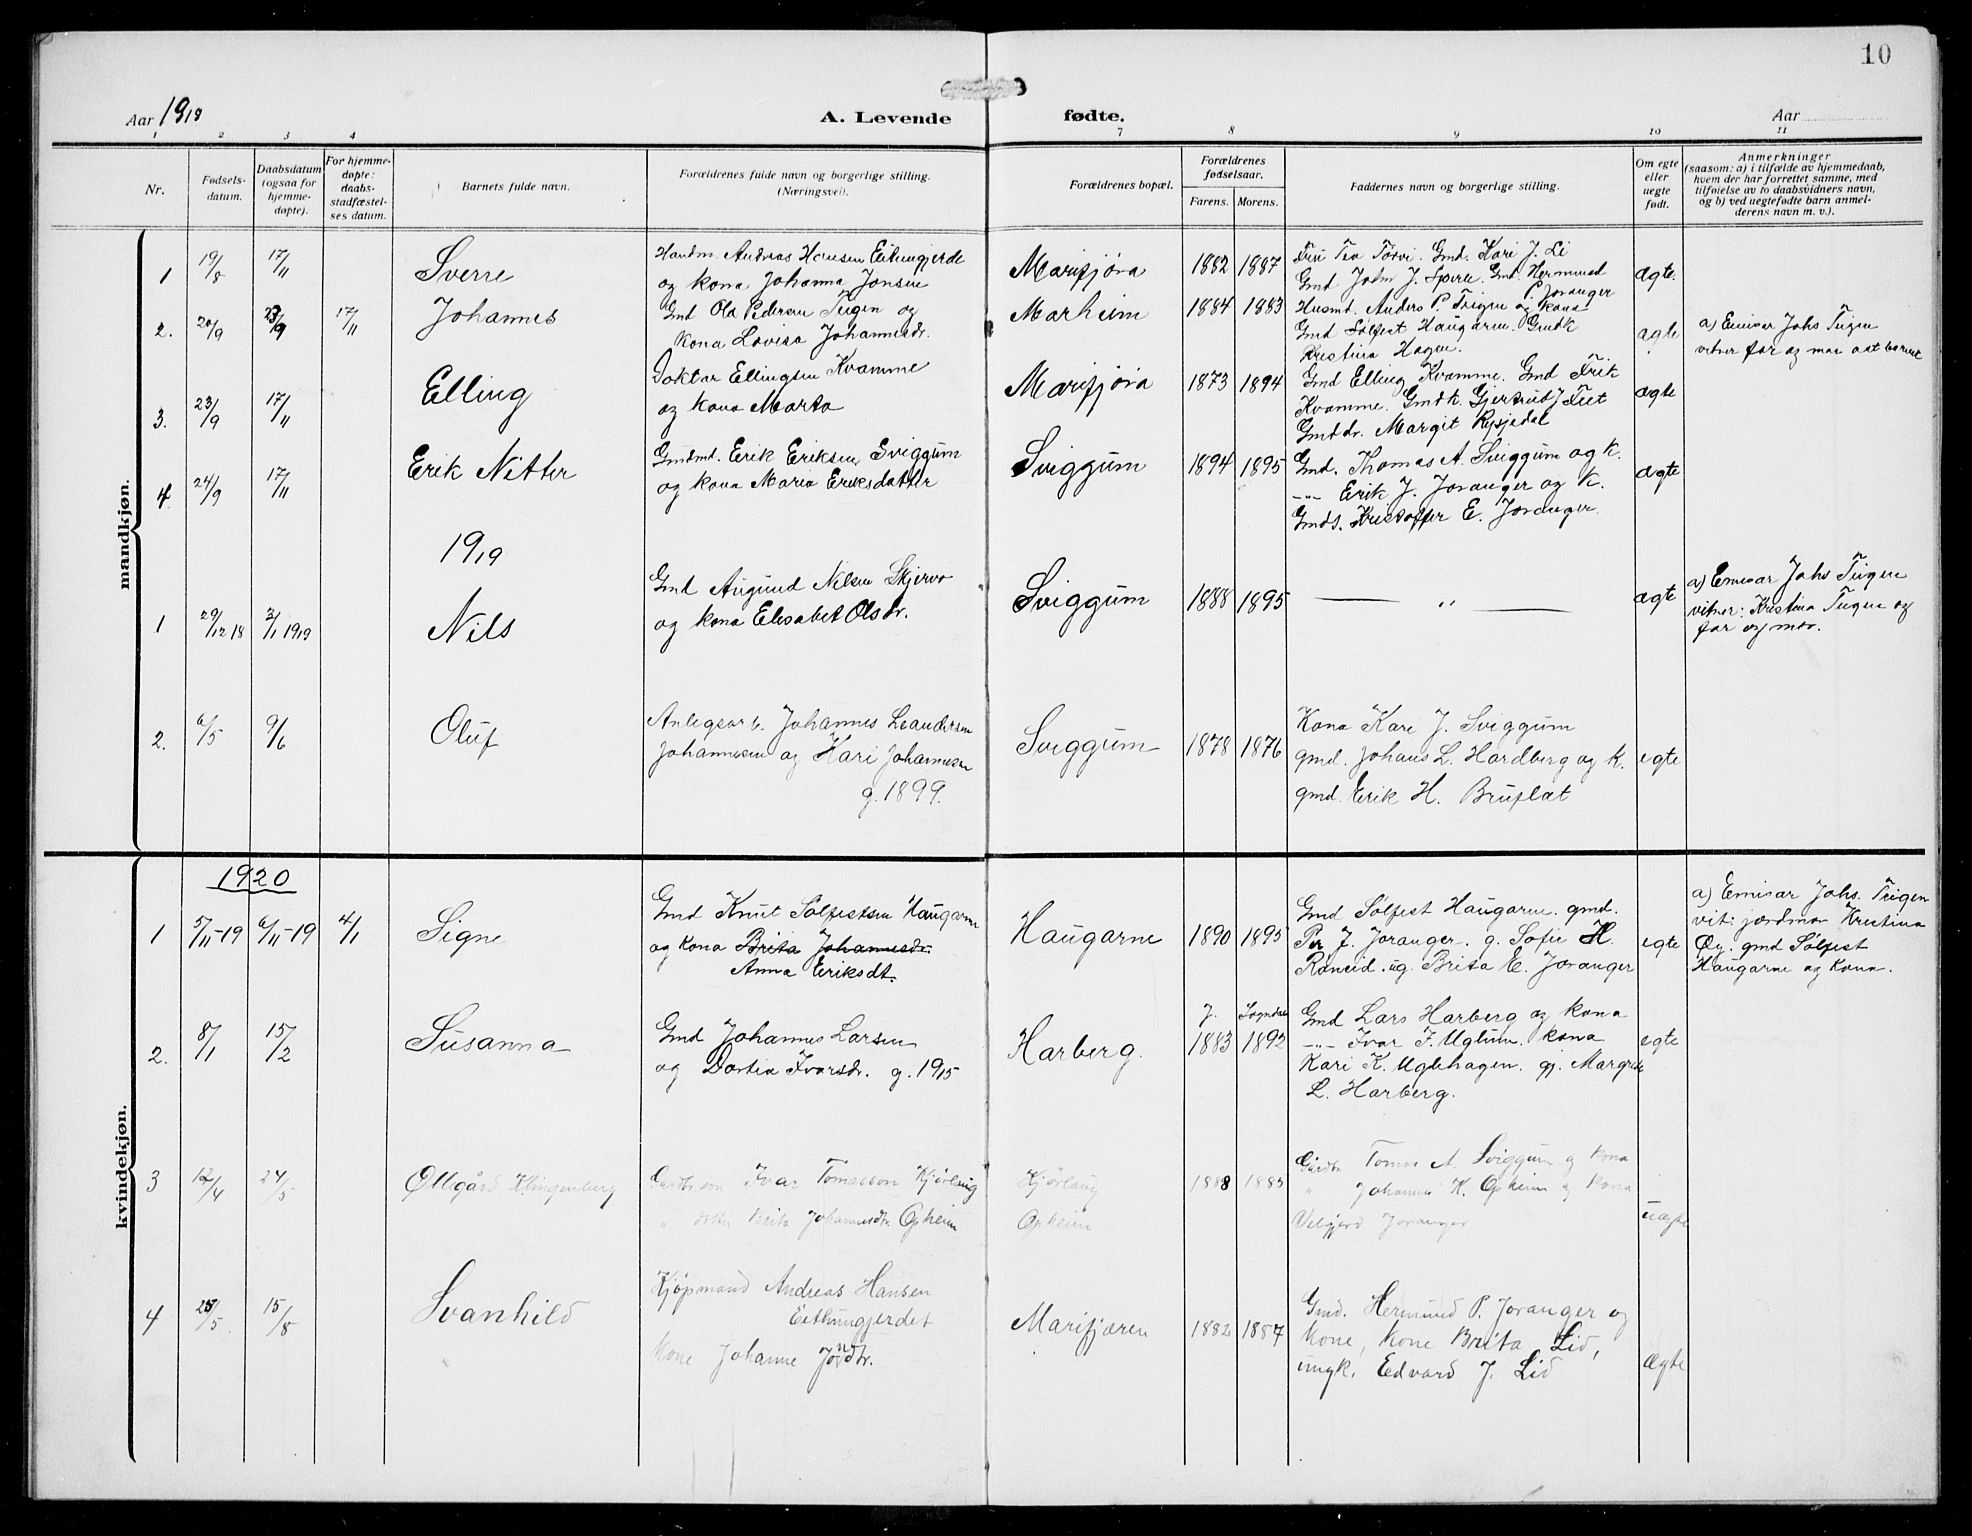 10
Aar 1918
A. Levende fødte.
Aar
1 2 3 4 7 8 9 10 11
Nr.
Fødsels-
datum.
Daabsdatum
(ogsaa for
hjemme-
døpte).
For hjemme-
døpte:
daabs-
stadfæstel-
ses datum.
Barnets fulde navn.
Forældrenes fulde navn og borgerlige stilling.
(Næringsvei).
Forældrenes bopæl.
Forældrenes
fødselsaar.
Farens. Morens.
Faddernes navn og borgerlige stilling.
Om egte
eller
uegte
født.
Anmerkninger
(saasom: a) i tilfælde av hjemmedaab,
hvem der har forrettet samme, med
tilføielse av to daabsvidners navn,
og b) ved uegtefødte barn anmel-
derens navn m. v.).
mandkjøn.
1 19/8 17/11 Sverre
Handm. Andreas Hansen Eitungjerde
og kona Johanna Jonsen
Marifjøra 1882 1887
Tea Törvi. Gmd. Kari J. Li
Gmd John J. Gmd. Hermund
P. Joranger
ægte.
2. 20/9 23/9 17/11 Johannes
Gmd Ola Pedersen Teigen og
kona Lovisa Johannesdr.
Marheim 1884 1883
Husmd. Anders P. Teigen og kona
Gmd Sølfest Haugarne. Gmdk
Kristina Hagen.
ægte
a) Emisær Johs Teigen
vitner far og mor aat barnet
3. 23/9 17/11 Elling
Doktar Ellingsen Kvamme
og kona Marta
Marifjøra 1873 1894
Gmd Elling Kvamme. Gmd Eirik
Kvamme. Gmdk. Gjertrud J Feet
Gmddr. Margit Rysjedal
ægte
4 24/9 17/11 Erik Nitter
Gmdmd. Erik Eriksen Sviggum
og kona Maria Eriksdatter
Sviggum 1894 1895
Gmd. Thomas A. Sviggum og k.
-"- Erik J. Joranger og k.
Gmds. Kristoffer E. Joranger.
ægte
1919
1 29/12 18 2/1 1919 Nils
Gmd Augund Nilsen Skjervo
og kona Elisabet Olsdr.
Sviggum 1888 1895
— " —
ægte
a) Emisær Johs Teigen
vitner: Kristina Teigen og
far og mor.
2. 6/5 9/6 Oluf
Anlegsarb. Johannes Leandersen
Johannesen og Kari Johannesen
g. 1899.
Sviggum 1878 1876
Kona Kari J. Sviggum
gmd. Johans L. Hardberg og k.
gmd. Erik H. Bruflat
egte
kvindekjøn.
1920
1 5/11-19 6/11-19 4/1 Signe
Gmd Knut Sølfestsen Haugarne
og kona Brita Johannesdr.
Anna Eriksdt.
Haugarne 1890 1895
Gmd Sølfest Haugarne. gmd.
Per J. Joranger. g. Sofie H.
Røneid. ug. Brita E. Joranger
egte
a) Emisær Johs. Teigen
vit: jordmor Kristina
Øy. gmd Sølfest
Haugarne og kona.
2. 8/1 15/2 Susanna
Gmd Johannes Larsen
og Dortea Ivarsdr. g. 1915
Harberg.
J. Sogndal
1883 1892
Gmd Lars Harberg og kona
-"- Ivar F. Uglum. kona
Kari K. Uglehagen. gj. Margrete
L. Harberg.
egte
3 12/4 24/5 Ollegård Klingenberg
Gardbr. søn Ivar Tomasson Kjørlaug
" dotter Brita Johannesdr. Opheim
Kjørlaug
Opheim
1888 1885
Gardbr. Tomas A. Sviggum og kona
" Johannes K. Opheim og kona
Velgjerd Joranger
uægte
4 25/5 15/8 Svanhild
Kjøpmand Andreas Hansen
Eithungjerdet
Kone Johanne Jondtr.
Marifjæren 1882 1887
Gmd. Hermund P. Joranger og
kone, kone Brita Lid,
ungk. Edvard J. Lid
Ægte